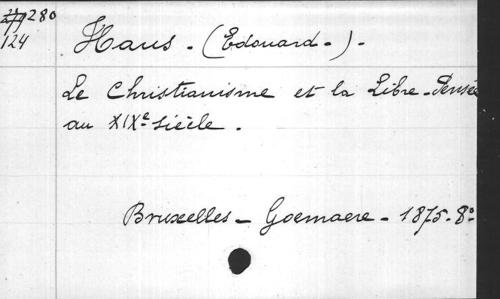 280
124
Haus. (Edouard.).
Le Christianisme et la Libre-Pensée
au XIXe siècle.
Bruxelles - Goemaere - 1875. 8o